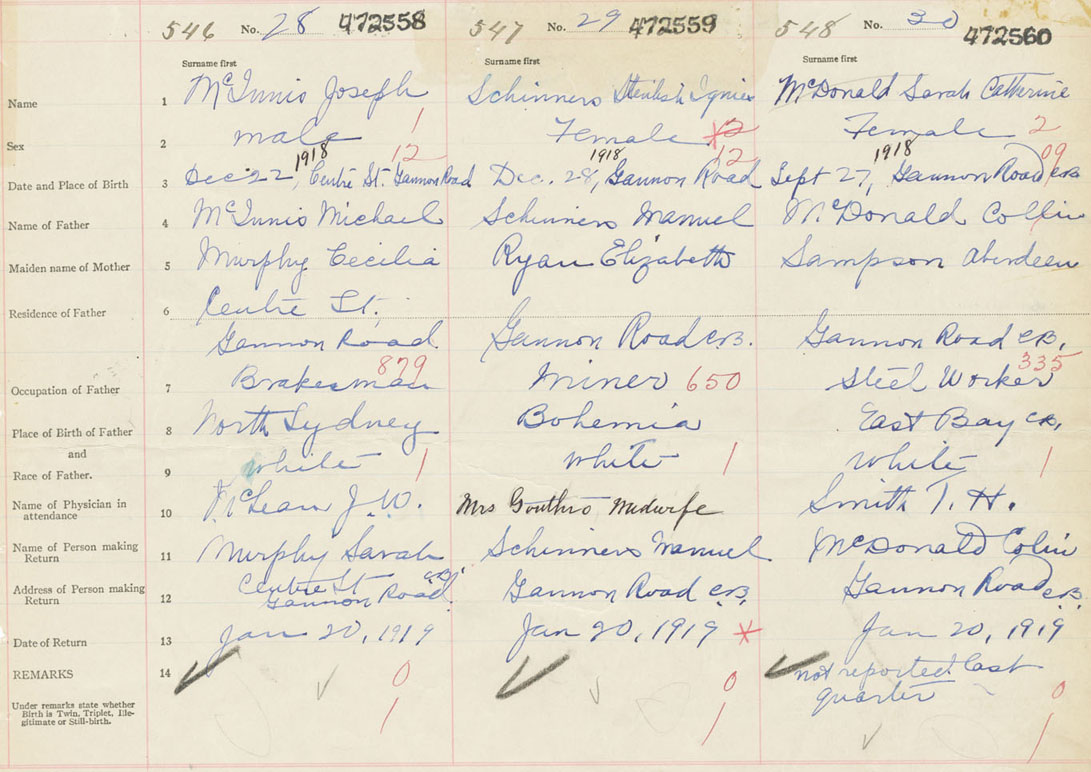 546 No. 28 472558 547 No. 29 472559 548 No. 30 472560
Surname first Surname first Surname first
Name 1 McInnis Joseph Schinners Ignies McDonald Sarah Catherine
Sex 2 male 1 Female 2 Female 2
12 12 09
1918 1918 1918
Date and Place of Birth 3 Dec 22, Centre St. Gannon Road Dec. 28, Gannon Road Sept 27, Gannon Road C.B.
Name of Father 4 McInnis Michael Schinners Manuel McDonald Collin
Maiden name of Mother 5 Murphy Cecilia Ryan Elizabeth Sampson Aberdeen
Residence of Father 6 Centre St.,
Gannon Road Gannon Road C.B. Gannon Road C.B.
879 335
Occupation of Father 7 Brakesman Miner 650 Steel Worker
Place of Birth of Father 8 North Sydney Bohemia East Bay C.B.
and
Race of Father. 9 white 1 white 1 white 1
Name of Physician in
attendance 10 McLean J.W. Mrs Gouthro Midwife Smith T. H.
Name of Person making
Return 11 Murphy Sarah Schinners Manuel McDonald Colin
Address of Person making
Return 12 Centre St
Gannon Road C.B. Gannon Road C.B. Gannon Road C.B.
Date of Return 13 Jan 20, 1919 Jan 20, 1919 Jan 20, 1919
REMARKS 14 0 0 not reported last
quarter 0
Under remarks state whether
Birth is Twin, Triplet, Ille-
gitimate or Still-birth. 1 1 1